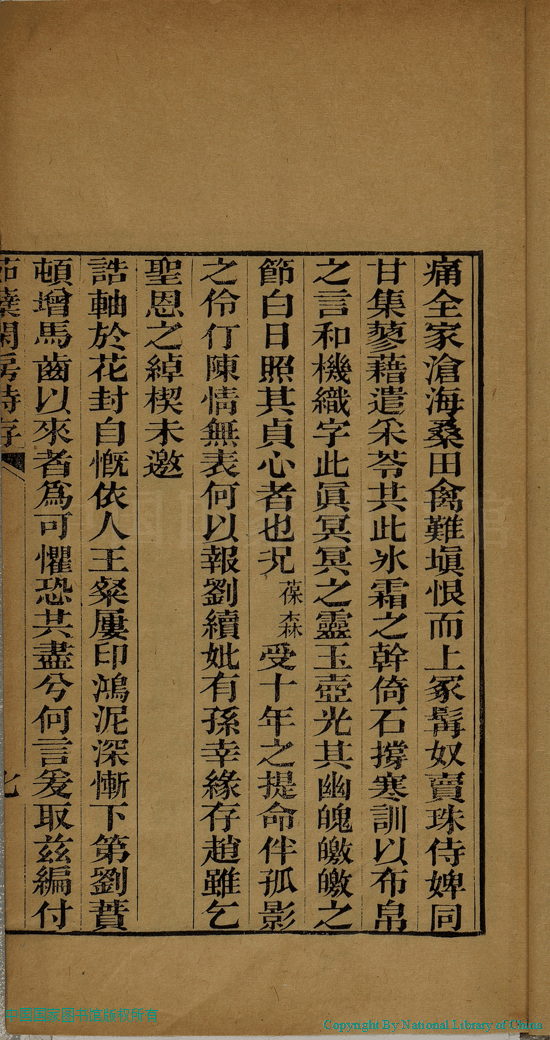 痛全家滄海桑田禽難塡恨而上冢髯奴賣珠侍婢同
甘集蓼藉遣采苓共此氷霜之幹倚石撐寒訓以布帛
之言和機織字此眞冥冥之靈玉壺光其幽魄皦皦之
節白日照其貞心者也況葆森受十年之提命伴孤影
之伶仃陳情無表何以報劉續妣有孫幸緣存趙雖乞
聖恩之綽楔未邀
誥軸於花封自慨依人王粲屢印鴻泥深慚下第劉蕡
頓增馬齒以來者爲可懼恐共盡兮何言爰取兹編付
茹蘗閑房詩存
七
中国国家图书馆版权所有
Copyright By National Library of China